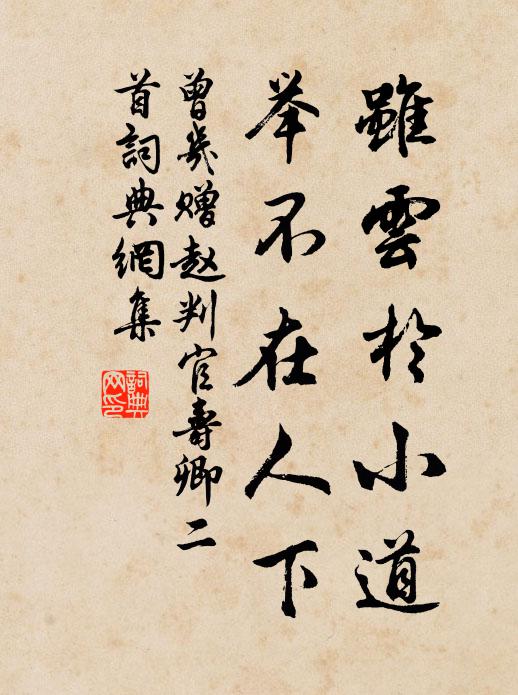 雖雲於小道
举不在人下
曾幾赠赵判官寿卿二
首詞典網集
詞典網印